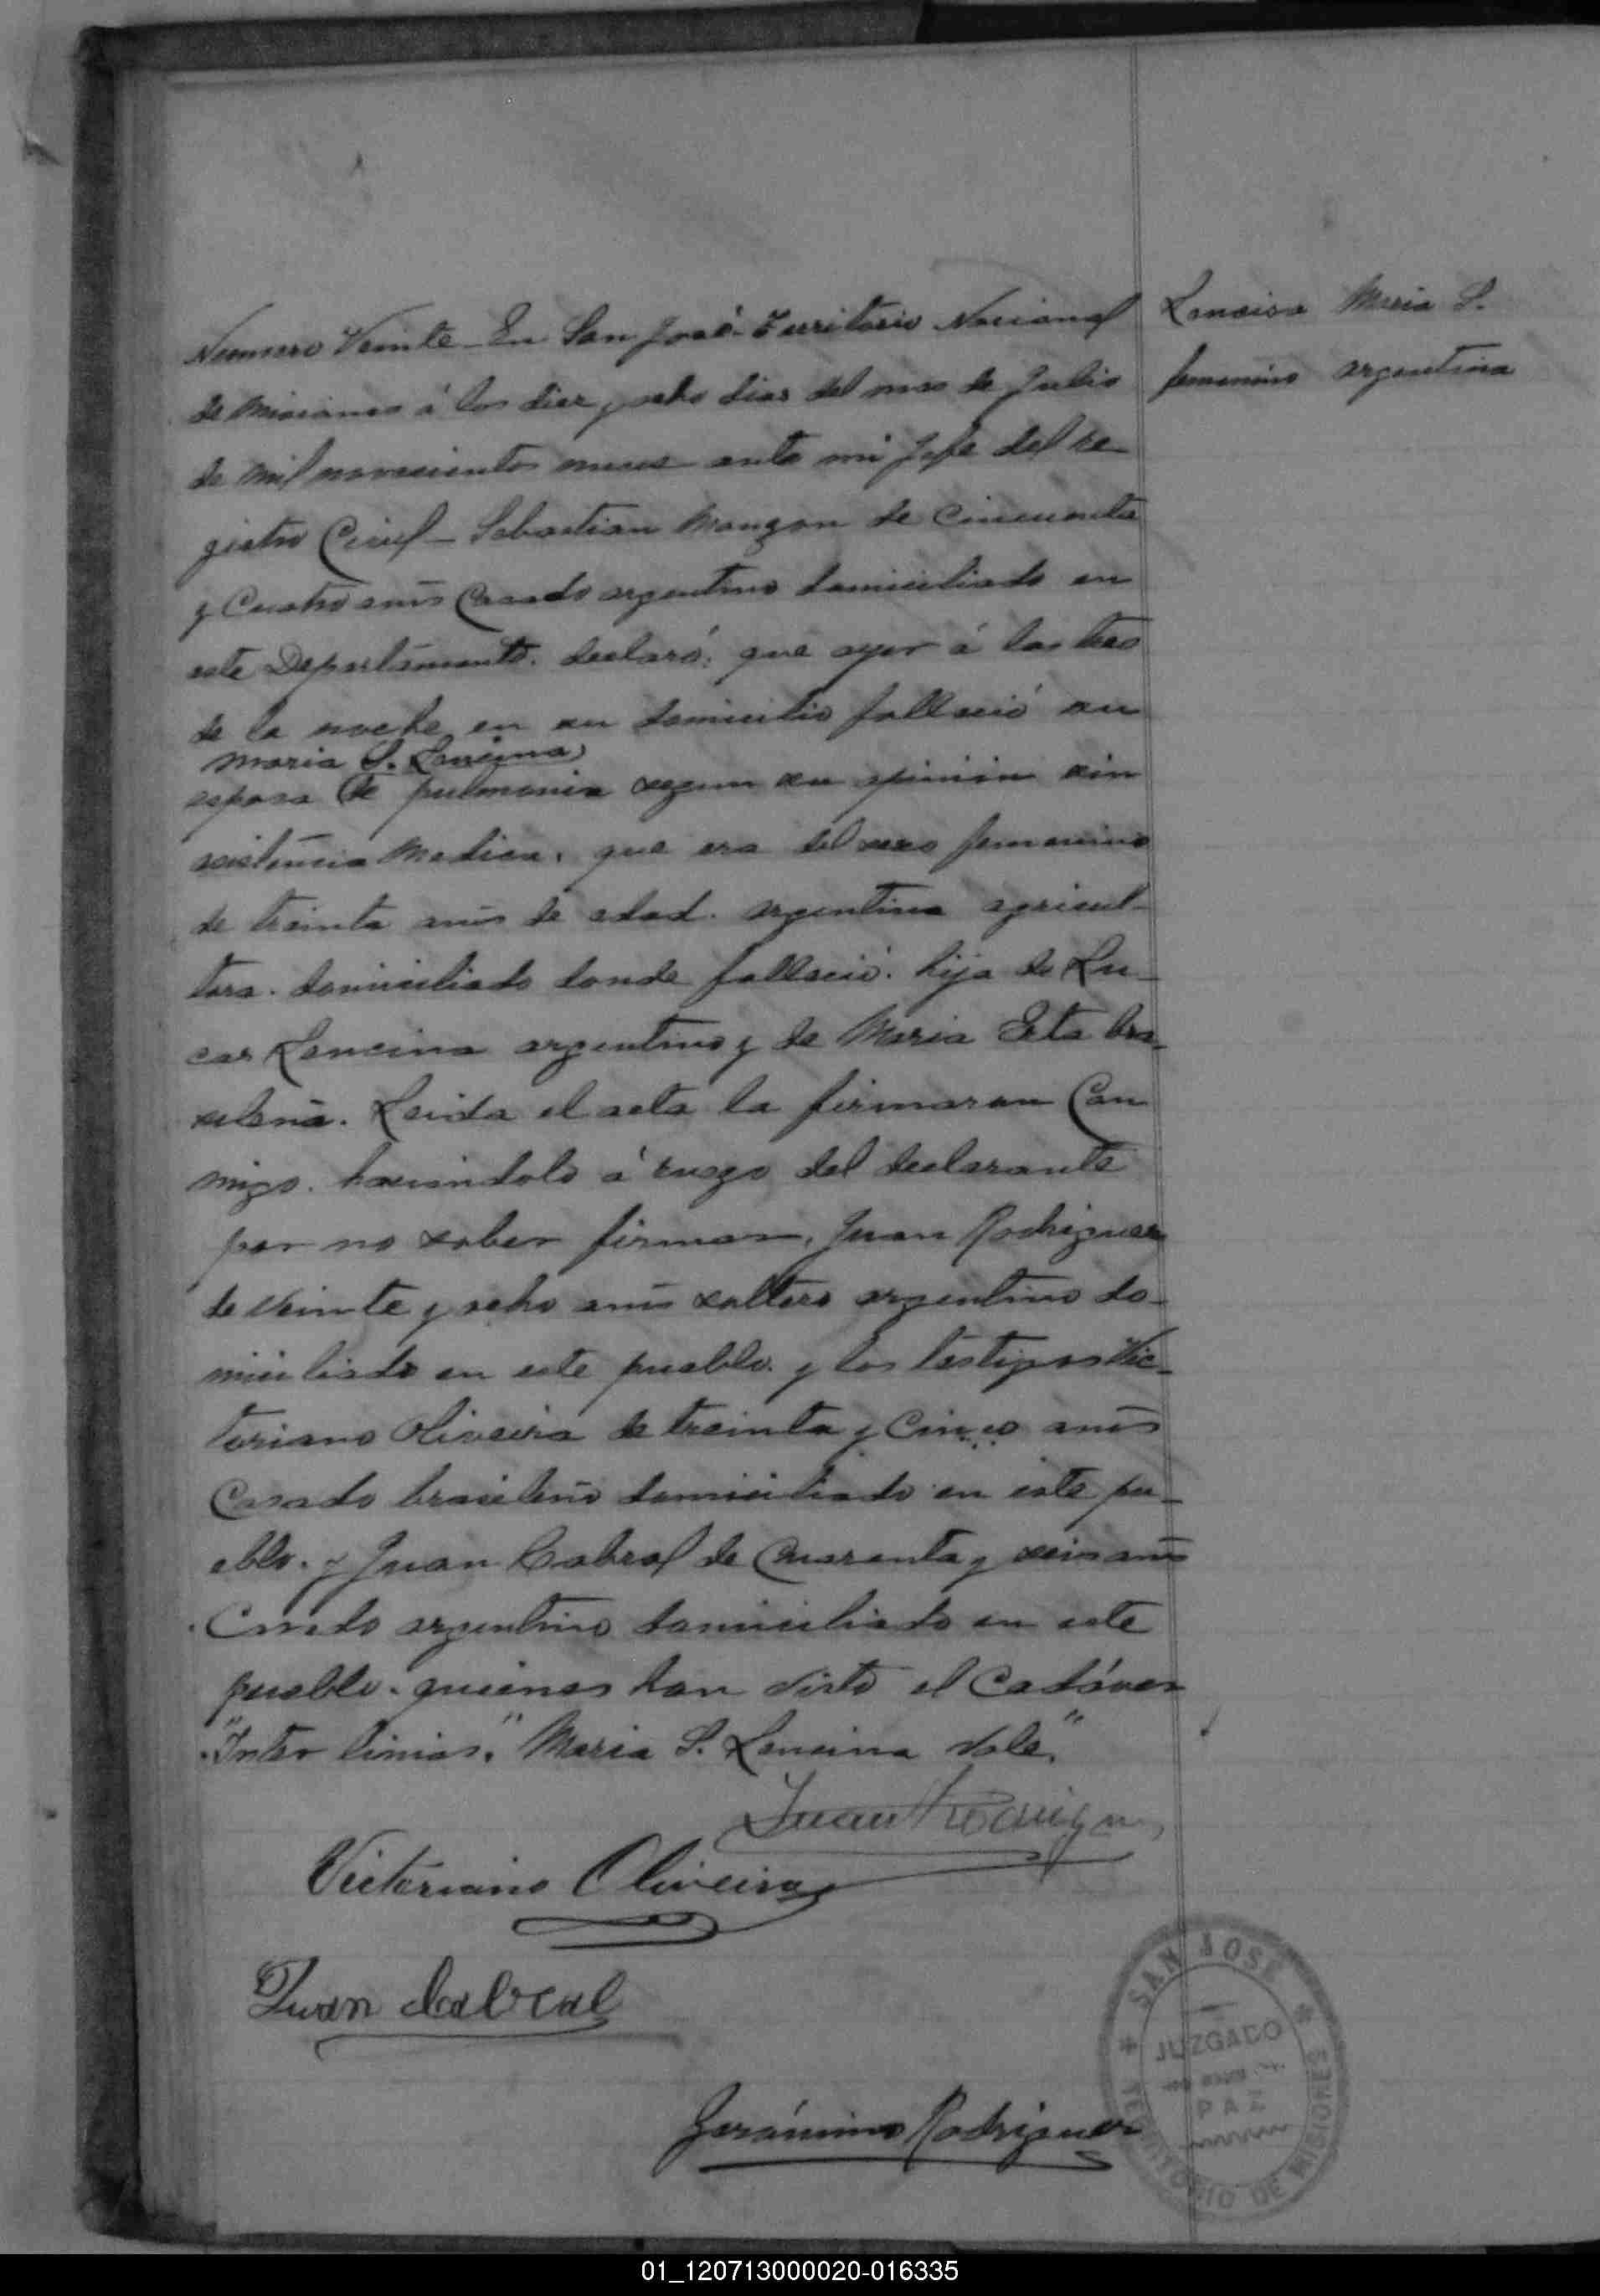 Numero Veinte - En San José - Territorio Nacional
de Misiones á los diez y ocho dias del mes de Julio
de mil novecientos nueve ante mi Jefe del re-
gistro Civil - Sebastian Monzon de Cincuenta
y Cuatro años Casado argentino domiciliado en
este Departamento. declaró: que ayer á las tres
de la noche en su domicilio falleció su
Maria S. Lencina
esposa de pulmonia segun su opinion sin
asistencia Medica. que era del sexo femenino
de treinta años de edad. argentina agricul-
tora. domiciliado donde falleció. hija de Lu-
cas Lencina argentino y de Maria bra-
silena. Leida el acta la firmaron Con
migo. haciendolo á ruego del declarante
por no saber firmar, Juan Rodriguez
de Veinte y ocho años soltero argentino do-
miciliado en este pueblo. y los testigos Vic-
toriano Oliveira de treinta y Cinco años
Casado brasileño domiciliado en este pu-
eblo. y Juan Cabral de Cuarenta y seis años
Casado argentino domiciliado en este
pueblo. quienes han visto el Cadáver
"Inter linias." Maria S. Lencina Vale."
Juan Rodriguez
Victoriano Oliveira
Juan Cabral
Gerónimo Rodriguez
Lencina Maria S.
femenino argentina
SAN JOSE
JUZGADO
PAZ
TERRITORIO DE MISIONES
01_120713000020-016335